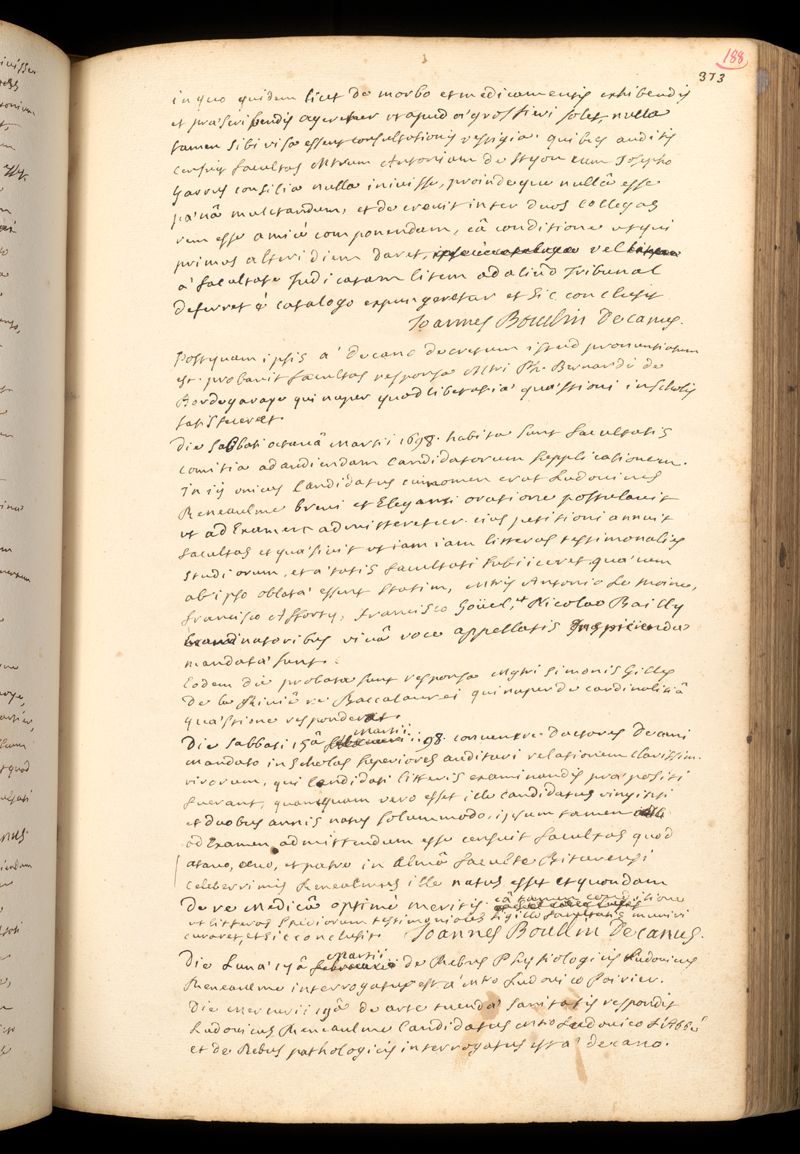 188
373
in quo quidem licet de morbo et medicamentis exhibendis
et præscribendis ageretur ut apud ægros fieri solet, nulla
tamen sibi visa essent consultationis vestigia. quibus auditis
censuit facultas Mtrum Antonium de Styon cum Josepho
Garros consilia nulla inivisse, proindeque nullâ esse
pœnâ mulctandum, et decrevit inter duos collegas
rem esse amicè componendam, eâ conditione ut qui
primus alteri diem daret, vel
à facultate Judicatam litem ad aliud Tribunal
deferret è catalogo expungeretur et sic conclusit
Joannes Boudin Decanus.
Postquam ipsis a' decano decretum istud pronuntiatum
est. probavit facultas responsa Mtri Ph. Bernardi de
Bordegaraye qui nuper quodlibetariæ quæstioni in scholis
satisfecerat.
Die Sabbati octavâ Martii 1698. habita sunt facultatis
comitia ad audiendam Candidatorum supplicationem.
In iis unicus Candidatus cui nomen erat Ludovicus
Reneaulme brevi et Eleganti oratione postulavit
ut ad Examen admitteretur. eius petitioni annuit
facultas et quæsivit ut iam iam litteras testimoniales
studiorum, et ætatis facultati subiiceret. quæ cum
ab ipso oblatæ essent statim, Mtris Antonio Le Moine,
francisco Afforty, francisco Goüel, et Nicolao Bailly
examinatoribus vivâ voce appellatis Inspiciendæ
mandatæ sunt.
Eodem die probata sunt responsa Mgtri Simonis Gilles
De la Riviere Baccalaurei qui nuper de cardinalitiâ
quæstione responderat.
Die Sabbati 15â Martii 1698. convenere Doctores Decani
mandato in scholas superiores audituri relationem clarissim.
virorum, qui Candidati litteris examinandis præpositi
fuerant, quamquam vero esset ille candidatus viginti
et duobus annis natus solummodo, ipsum tamen
ad Examen admittendum esse censuit facultas quod
atavo, avo, et patre in Almâ facultate
celeberrimis Renealmis ille natus esset et quondam
de re Medicâ optimè meritis. eâ tamen conditione
ut litteras studiorum testimoniales sigillo facultatis muniri
curaret, et sic conclusit. Joannes Boudin Decanus.
Die Lunæ 17â Martii de Rebus Physiologicis Ludovicus
Reneaulme interrogatus est a Mtro Ludovico Poirier.
Die Mercurii 19â de arte tuendæ sanitatis respondit
Ludovicus Reneaulme Candidatus Mtro Ludovico L'Abbé
et de Rebus pathologicis interrogatus est a' decano.